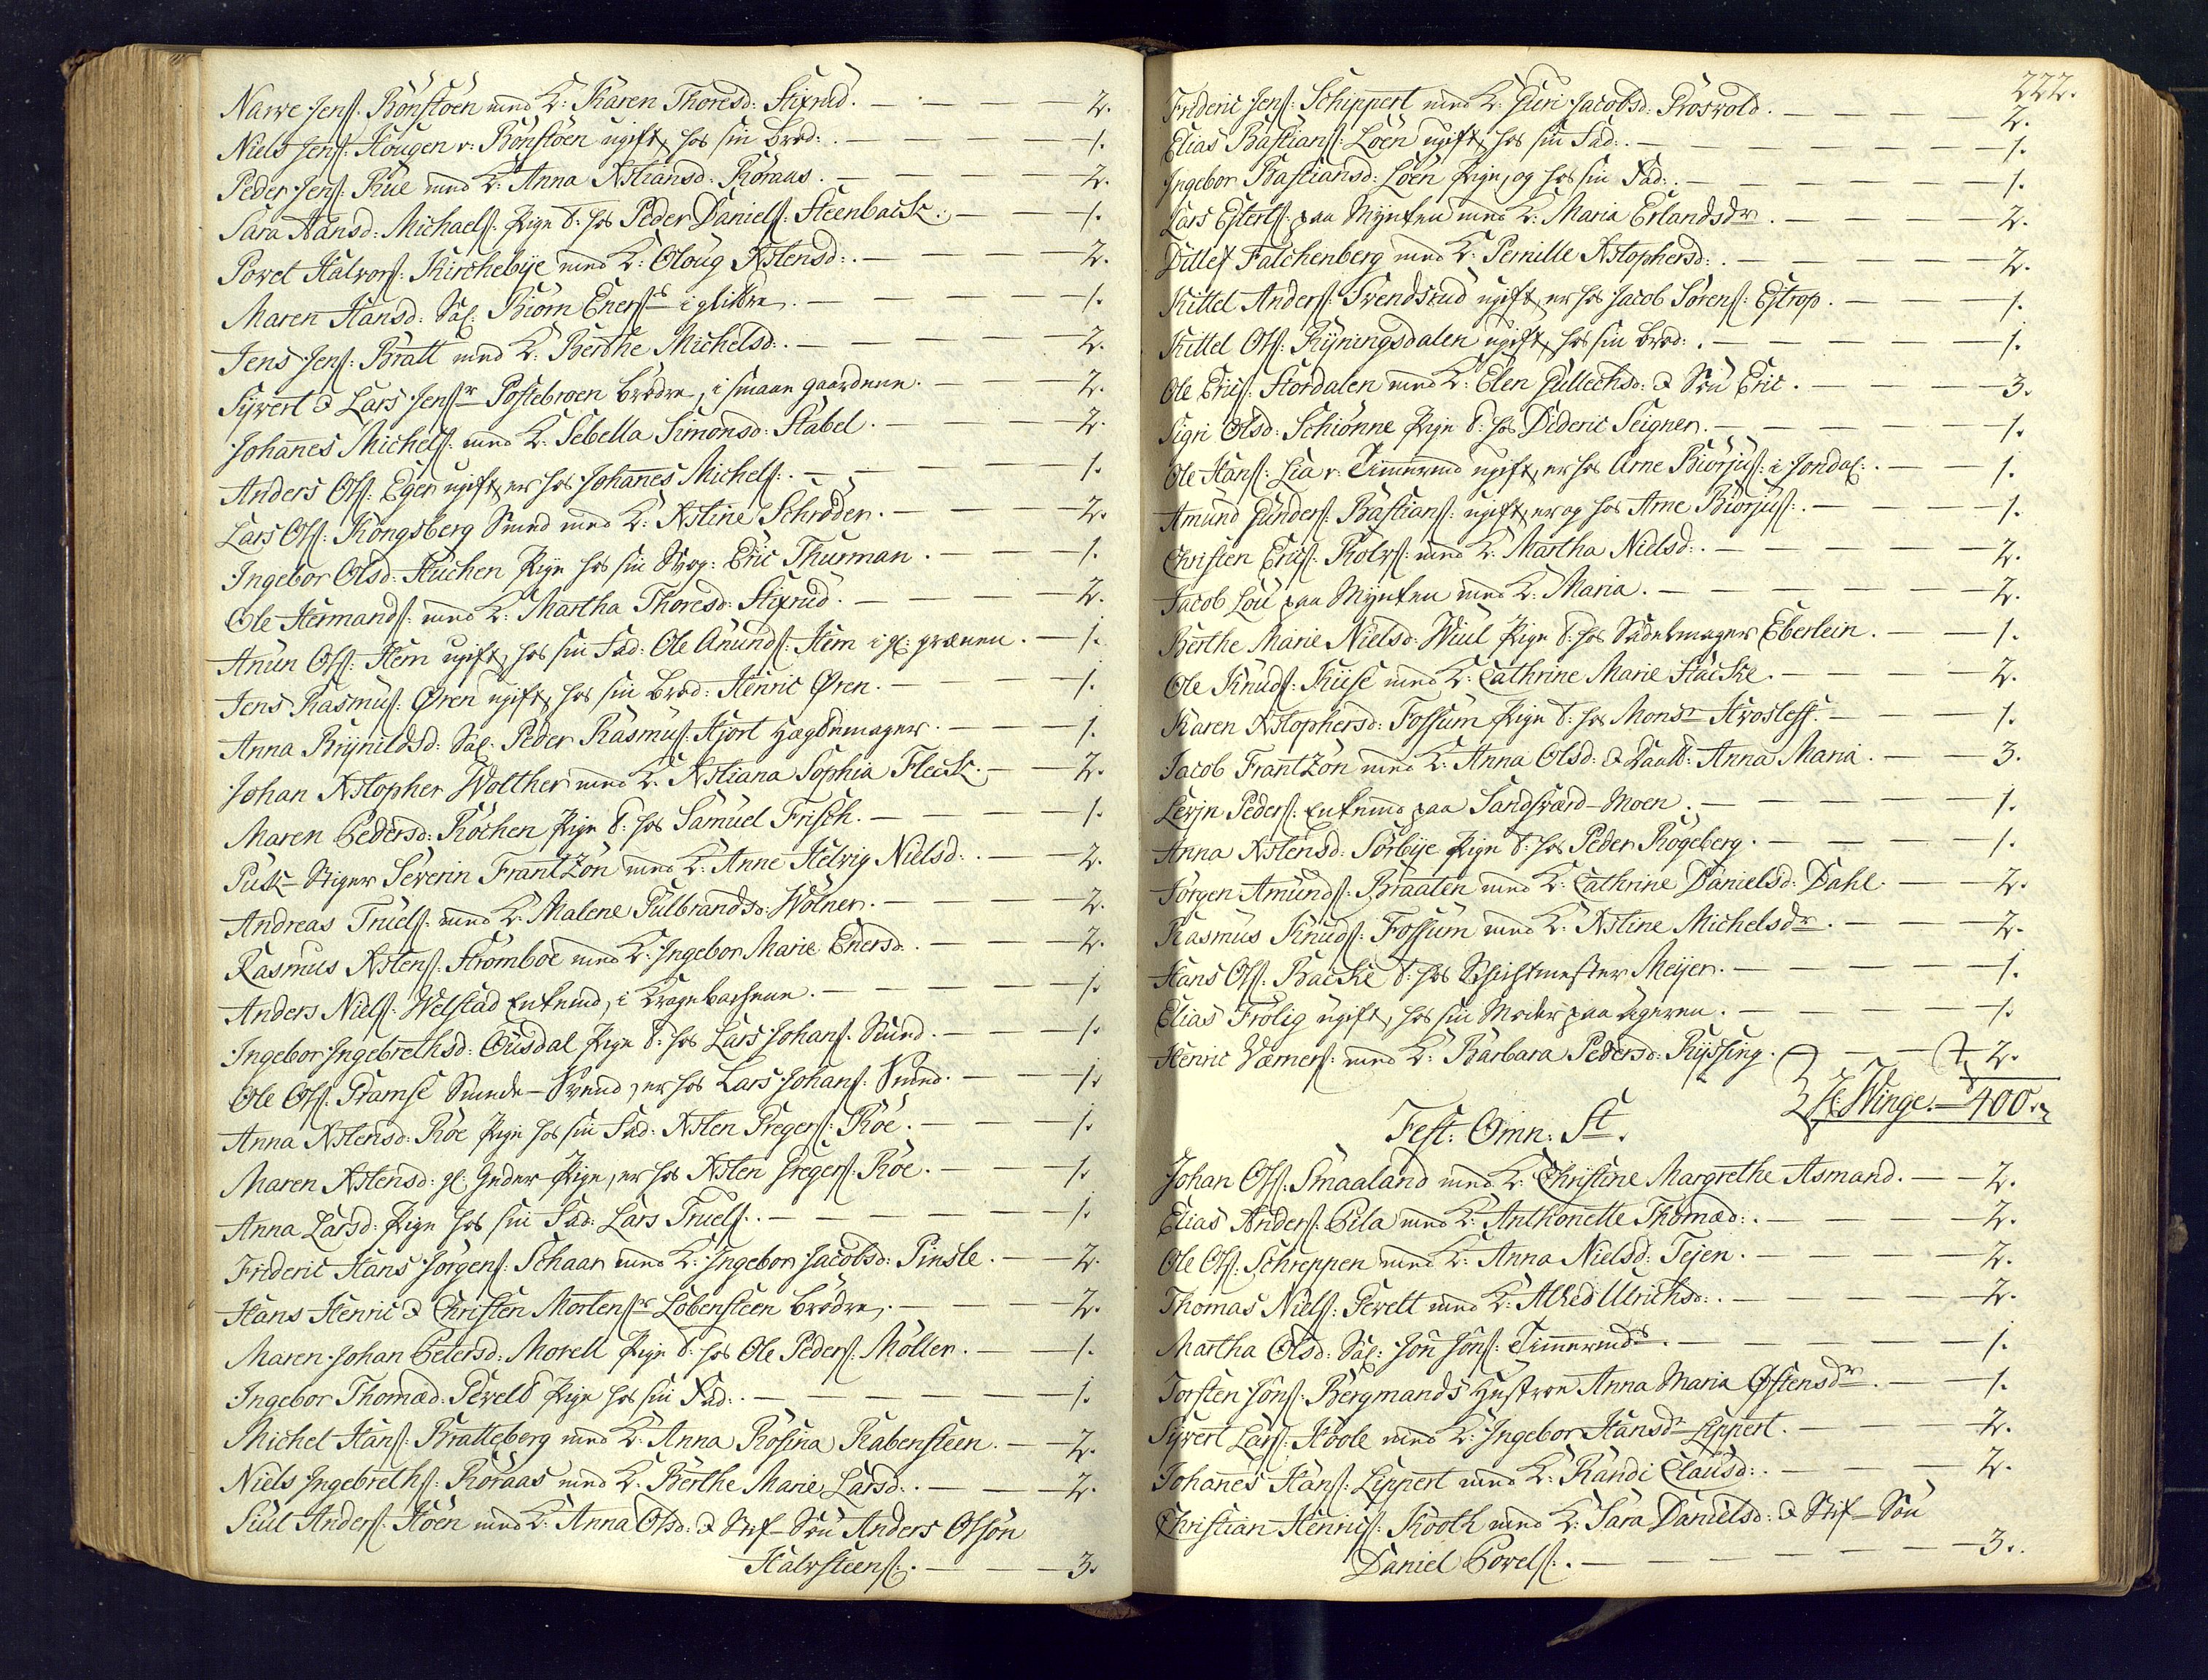 Narve Jens: Bönstöen med K: Karen Thoresd: Stixrud. — — — — 2.
Niels Jens: Hougen v: Bönstöen ugift, hos sin brod: — — — — 1.
Peder Jens: Rue med K: Anna Xstiansd: Röraas. — — — — 2.
Sara Hansd: Michaels: Pige t: hos Peder Daniels: Steenback. — — 1.
Povel Halvors: Kirchebÿe med K: Oloug Xstensd: — — — — 2.
Maren Hansd: Sal: Biörn Eners: i glitre. — — — — 1.
Jens Jens: Bratt med K: Berthe Michelsd: — — — — 2.
Sÿvert & Lars Jens: Postebroen brödre, i smaae gaardene. — — — 2.
Johanes Michels: med K: Sebella Simonsd: Stabel. — — — — 2.
Anders Ols: Eger ugift, er hos Johanes Michels: — — — — 1.
Lars Ols: Kongsberg Smed med K: Xstine Schröder. — — — — 2.
Ingebor Olsd: Stuchen Pige hos sin Svog: Eric Thurman. — — — 1.
Ole Hermands: med K: Martha Thoresd: Stixrud. — — — — 2.
Anun Ols: Hem ugift, hos sin Fad: Ole Anunds: Hem i gl: grænen. — 1.
Jens Rasmus: Øren ugift, hos sin brod: Henric Øren. — — — — 1.
Anna Brÿnildsd: Sal: Peder Rasmus: Hjort Hægtemager. — — 1.
Johan Xstopher Wolther med K: Xstiana Sophia Fleck. — — 2.
Maren Pedersd: Kochen Pige t: hos Samuel Frisch. — — — — 1.
Puk-Stiger Severin Frantzon med K: Anne Helvig Nielsd: — — — 2.
Andreas Truels: med K: Malene Gulbrandsd: Wolner. — — — — 2.
Rasmus Xstens: Stromboe med K: Ingebor Marie Enersd. — — — 2.
Anders Niels: Welstad Enkemd, i Kragebachene. — — — — 1.
Ingebor Ingebrethsd: Ousdal Pige t: hos Lars Johans: Smed. — — — 1.
Ole Ols: Pramse Smede-Svend, er hos Lars Johans: Smed. — — — 1.
Anna Xstensd: Röe Pige hos sin Fad: Xsten Gregers: Röe. — — — 1.
Maren Xstensd: gl: Pige, er hos Xsten Gregers: Röe. — — — 1.
Anna Larsd: Pige hos sin Fad: Lars Truels: — — — — 1.
Frideric Hans Jörgens: Schaar med K: Ingebor Jacobsd: Pinsle. — — 2.
Hans Henric & Christen Mortens: Löbensteen brödre. — — — — 2.
Maren Johan Petersd: Morell Pige t: hos Ole Peders: Möller. — — 1.
Ingebor Thomæd: Peveld Pige hos sin Fad: — — — — 1.
Michel Hans: Bratteberg med K: Anna Rosina Rabensteen. — — 2.
Niels Ingebreths: Röraas med K: Berthe Marie Larsd: — — — — 2.
Siul Anders: Höen med K: Anna Olsd: & Stif-Sön Anders Olsön
Halvsteens: — — — 3.
222.
Frideric Jens: Schippert med K: Guri Jacobsd: Rosvold. — — — — 2.
Elias Bastians: Löen ugift, hos sin Fad: — — — — 1.
Ingebor Bastiansd: Löen Pige, og hos sin Fad: — — — — 1.
Lars Esterts: paa Mÿnten med K: Maria Erlandsdr. — — — — 2.
Ditlef Falchenberg med K: Pernille Xstophersd: — — — — 2.
Kittel Anders: Svendsrud ugift, er hos Jacob Sörens: Estrop. — — 1.
Kittel Ols: Rÿningsdalen ugift, hos sin brod: — — — — 1.
Ole Erics: Stordalen med K: Elen Gullechsd: & Sön Eric. — — — 3.
Sigri Olsd: Schiönne Pige t: hos Dideric Seigner. — — — — 1.
Ole Hans: Lia v: Timmermd ugift, er hos Arne Biörjus: i Jondal: — — 1.
Amund Gunders: Bastians: ugift, er og hos Arne Biörjus: — — — 1.
Christen Erics: Rolvs: med K: Martha Nielsd: — — — — 2.
Jacob Lou paa Mÿnten med K: Maria. — — — — 2.
Berthe Marie Nielsd: Wiul Pige t: hos Sadelmager Eberlein. — — 1.
Ole Knuds: Kiise med K: Cathrine Marie Hacke. — — — — 2.
Karen Xstophersd: Fossum Pige t: hos Monsr Hvosleff. — — — 1.
Jacob Frantzon med K: Anna Olsd: & Daatt: Anna Maria. — — 3.
Levin Peders: Enkemd paa Sandsværd-Moen. — — — — 1.
Anna Xstensd: Sörbÿe Pige t: hos Peder Rogeberg. — — — — 1.
Jörgen Amunds: Braaten med K: Cathrine Danielsd: Dahl. — — 2.
Rasmus Knuds: Fossum med K: Xstine Michelsdr. — — — — 2.
Hans Ols: Backe t: hos Schichtmester Meijer. — — — — 1.
Elias Frölig ugift, hos sin Moder paa ageren. — — — — 1.
Henric Værners: med K: Barbara Pedersd: Rÿssing. — — — 2.
H: Winge. — 400.
Fest: Omn: St.
Johan Ols: Smaaland med K: Christine Margrethe Asmand. — — 2.
Elias Anders: Pila med K: Anthonette Thomæd: — — — — 2.
Ole Ols: Schreppen med K: Anna Nielsd: Tejen. — — — — 2.
Thomas Niels: Pevelt med K: Alhed Ulrichsd: — — — — 2.
Martha Olsd: Sal: Jön Jöns: Timmermds. — — — — 1.
Torsten Jöns: Bergmands Hustroe Anna Maria Østensdr. — — — 1.
Sÿvert Lars: Hoole med K: Ingebor Hansdr Lippert. — — — — 2.
Johanes Hans: Lippert med K: Randi Clausd: — — — — 2.
Christian Henrics: Kooth med K: Sara Danielsd: & Stif-Sön
Daniel Povels: — — — — 3.